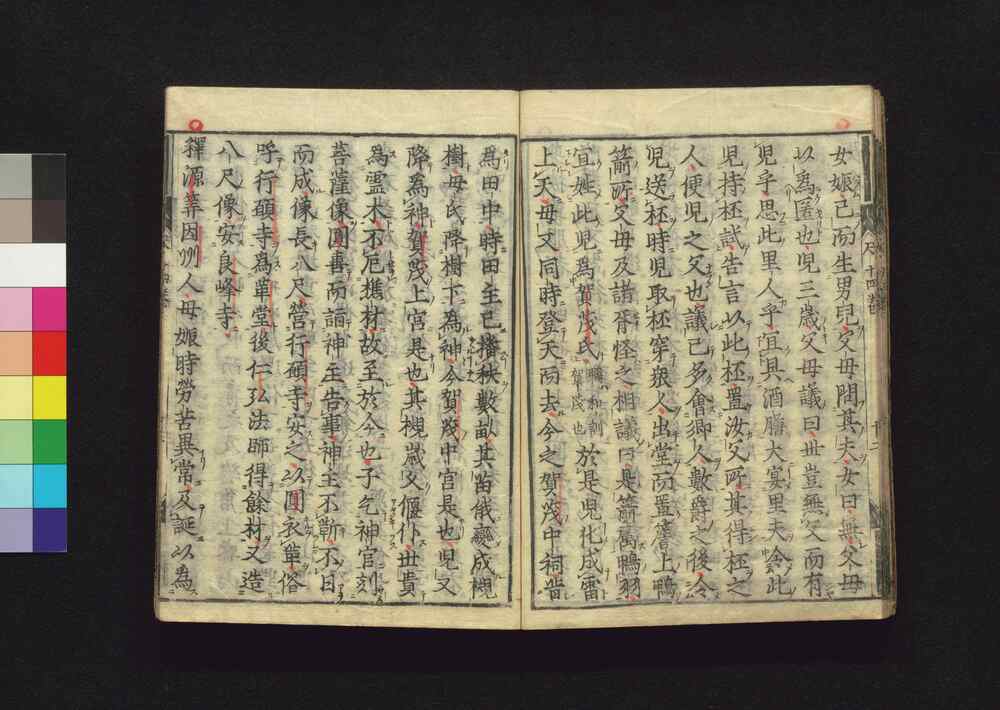 女娠已而生男兒父母問其夫女曰無父母
以爲匿也兒三歲父母議曰世豈無父而有
兒乎思此里人乎宜具酒膳大宴里夫令此
兒持柸試告言以此柸置汝父所其得柸之
人便兒之父也議已多會鄉人數爵之後令
兒送柸時兒取柸穿衆人出堂而置簷上鴨
箭所父母及諸胥怪之相議曰是箭鴨羽
宜姓此兒爲賀茂氏鴨和訓賀茂也於是兒化成雷
上天母又同時登天而去今之賀茂中祠皆
爲田中時田主已播秧數畝其苗俄變成槻
樹母氏降樹下爲神今賀茂中宮是也兒又
降爲神賀茂上宮是也其槻歲久偃仆世貴
爲靈木不厄樵材故至於今也子乞神官刻
菩薩像圓喜而誦神主告事神主不靳不日
而成像長八尺營行願寺安之以圓衣革俗
呼行願寺爲革堂後仁弘法師得餘材又造
八尺像安良峰寺
釋源算因州人母娠時勞苦異常及誕以爲
十四
十二